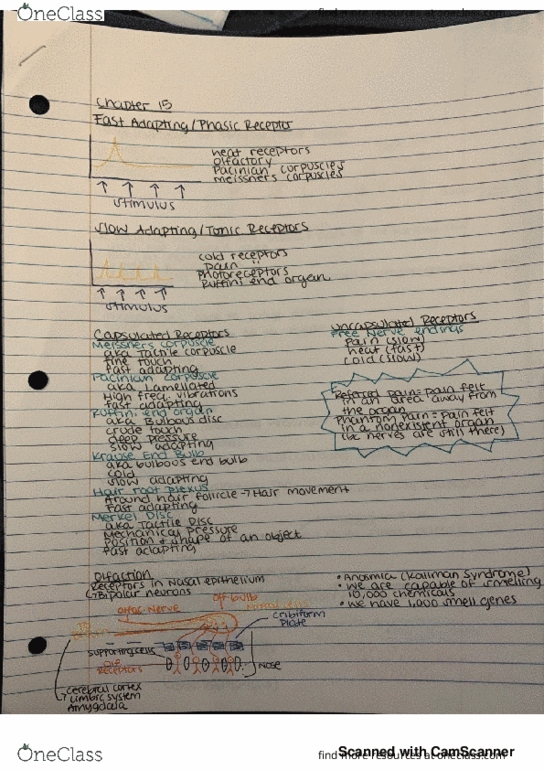 OneClass
find more resources at oneclass.com
Chapter 15
Fast Adapting/Phasic Receptor
heat receptors
olfactory
Pacinian corpuscles
meissners corpuscles
↑ ↑ ↑ ↑
stimulus
Slow Adapting/Tonic Receptors
cold receptors
pain "
Photoreceptors
Ruffini end organ
↑ ↑ ↑ ↑
stimulus
Capsulated Receptors
Meissners corpuscle
aka Tactile corpuscle
fine touch
fast adapting
Pacinian corpuscle
aka Lamellated
High freq. vibrations
fast adapting
Ruffini end organ
aka Bulbous disc
crude touch
deep pressure
slow adapting
Krause End Bulb
aka bulbous end bulb
cold
slow adapting
Hair root plexus
Around hair follicle → Hair movement
Fast adapting
Merkel Disc
aka Tactile Disc
Mechanical pressure
Position & shape of an object
fast adapting
Uncapsulated Receptors
Free Nerve endings
pain (slow)
heat (fast)
cold (slow)
Referred pain: pain felt
in an area away from
the organ
Phantom pain: pain felt
in a nonexistent organ
(bc nerves are still there)
Olfaction
Receptors in Nasal epithelium
↳ Bipolar neurons
• Anosmia (Kallman Syndrome)
• we are capable of smelling
10,000 chemicals
• we have 1,000 smell genes
olfac. Nerve
olf bulb
cribiform
plate
supporting cells
olf
receptors
Nose
cerebral cortex
Limbic system
Amygdala
OneClass
Scanned with CamScanner
find more resources at oneclass.com